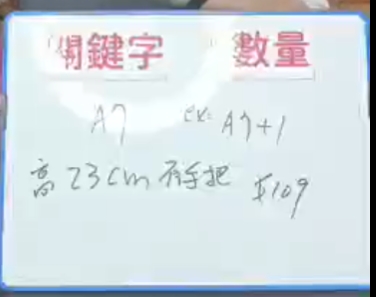 關鍵字 數量
A7 ex: A7+1
高 23cm 不手把 $109